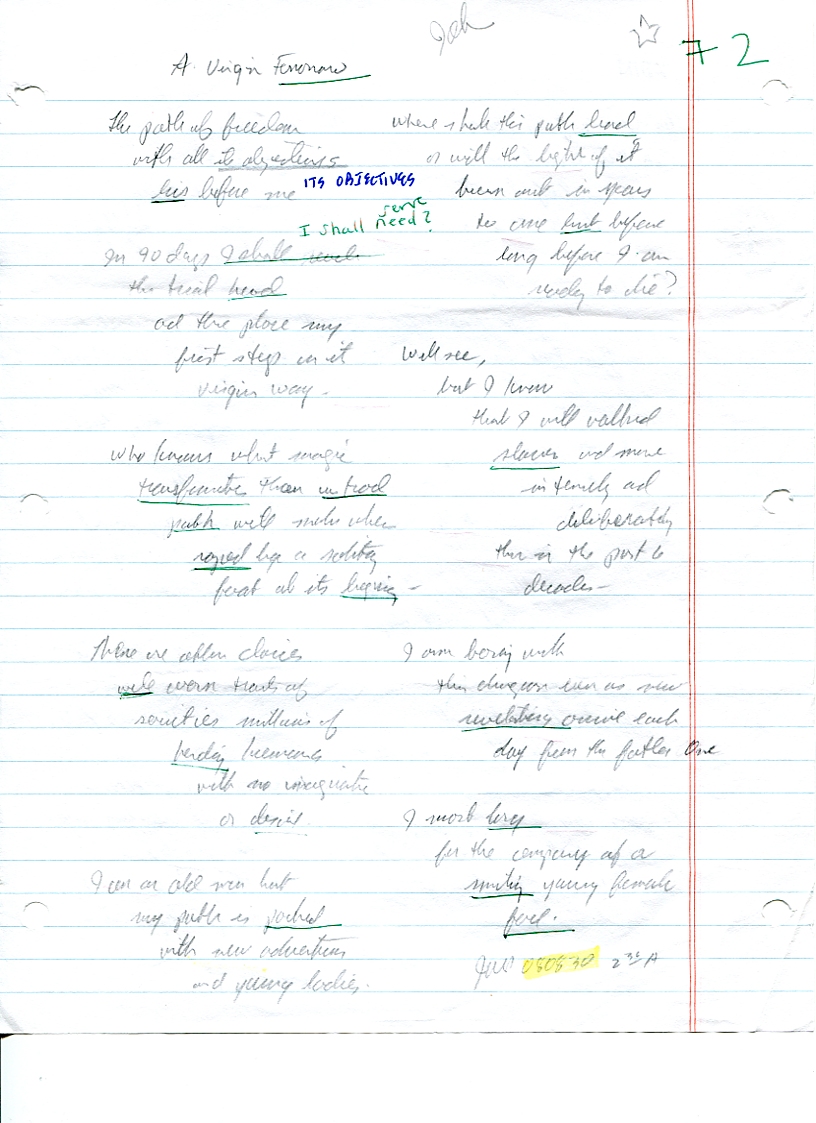 72
A Virgin
The path of freedom
with all its objectives
ITS OBJECTIVES
lies before me
serve
I shall need?
In 90 days I shall
the trial
and the place my
first step in it
virgin way -
who knows what magic
than
path will make when
by a solitary
foot at its
There are other choices
well worn trails of
societies millions of
herding humans
with no
or desire.
I am an old man but
my path is
with new adventures
and young bodies.
where shall this path lead
or will the light of it
burn out in years
to come but before
long before I am
ready to die?
We'll see,
but I know
that I will
slower and more
intensely and
deliberately
than in the past 6
decades -
I am boring with
this even as new
revelations arrive each
day from the One
I most long
for the company of a
smiling young female
face.
080830